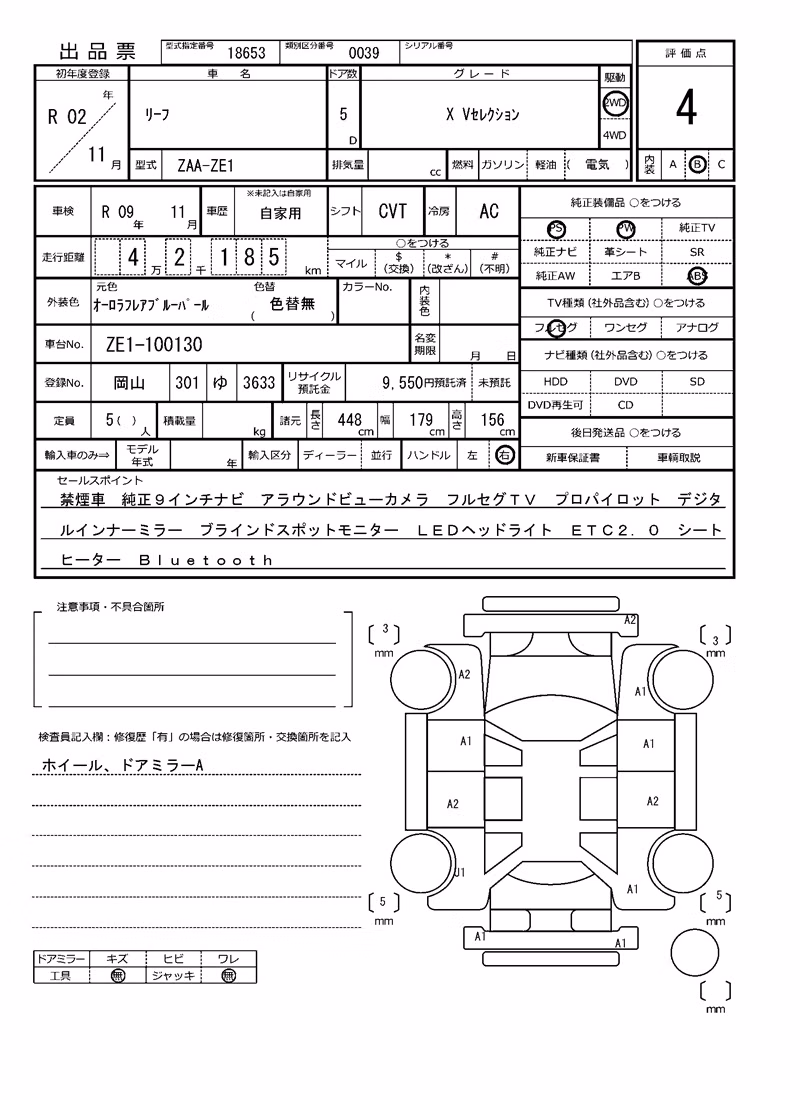 出品票 型式指定番号 18653 類別区分番号 0039 シリアル番号
評価点
4
内装 A B C
初年度登録 車名 ドア数 グレード 駆動
R 02 年 11 月 リーフ 5 D X Vセレクション 2WD 4WD
型式 ZAA-ZE1 排気量 cc 燃料 ガソリン 軽油 ( 電気 )
車検 R 09 年 11 月 車歴 ※未記入は自家用 自家用 シフト CVT 冷房 AC
走行距離 4 万 2 千 1 8 5 km ○をつける
マイル $ (交換) * (改ざん) # (不明)
外装色 元色 オーロラフレアブルーパール 色替 ( 色替無 ) カラーNo. 内装色
車台No. ZE1-100130 名変期限 月 日
登録No. 岡山 301 ゆ 3633 リサイクル預託金 9,550円預託済 未預託
定員 5( ) 人 積載量 kg 諸元 長さ 448 cm 幅 179 cm 高さ 156 cm
輸入車のみ⇒ モデル年式 年 輸入区分 ディーラー 並行 ハンドル 左 右
純正装備品 ○をつける
PS PW 純正TV
純正ナビ 革シート SR
純正AW エアB ABS
TV種類(社外品含む)○をつける
フルセグ ワンセグ アナログ
ナビ種類(社外品含む)○をつける
HDD DVD SD
DVD再生可 CD
後日発送品 ○をつける
新車保証書 車輌取説
セールスポイント
禁煙車 純正9インチナビ アラウンドビューカメラ フルセグTV プロパイロット デジタ
ルインナーミラー ブラインドスポットモニター LEDヘッドライト ETC2.0 シート
ヒーター Bluetooth
注意事項・不具合箇所
検査員記入欄:修復歴「有」の場合は修復箇所・交換箇所を記入
ホイール、ドアミラーA
ドアミラー キズ ヒビ ワレ
工具 無 ジャッキ 無
A2
3 mm
3 mm
A2
A1
A1
A1
A2
A2
J1
A1
5 mm
5 mm
A1
A1
mm